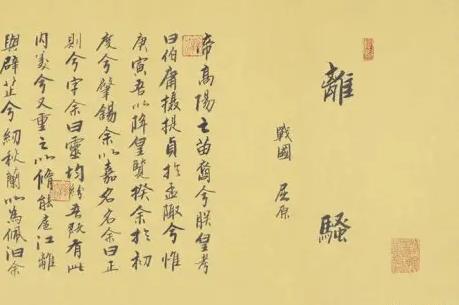 離騷
戰國 屈原
帝高陽之苗裔兮朕皇考
曰伯庸攝提貞於孟陬兮惟
庚寅吾以降皇覽揆余於初
度兮肇錫余以嘉名名余曰正
則兮字余曰靈均紛吾既有此
内美兮又重之以脩能扈江離
與辟芷兮紉秋蘭以為佩汨余